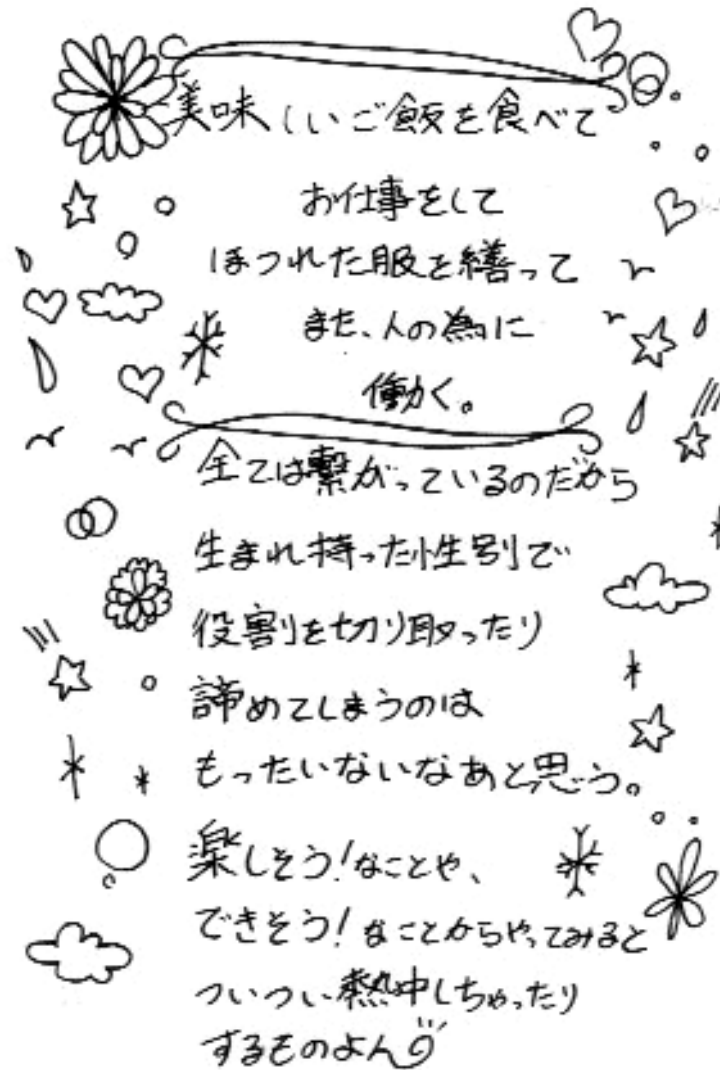 美味しいご飯を食べて
お仕事をして
ほつれた服を繕って
また、人の為に
働く。
全ては繋がっているのだから
生まれ持った性別で
役割を切り取ったり
諦めてしまうのは
もったいないなあと思う。
楽しそう!なことや、
できそう!なことからやってみると
ついつい熱中しちゃったり
するものよん